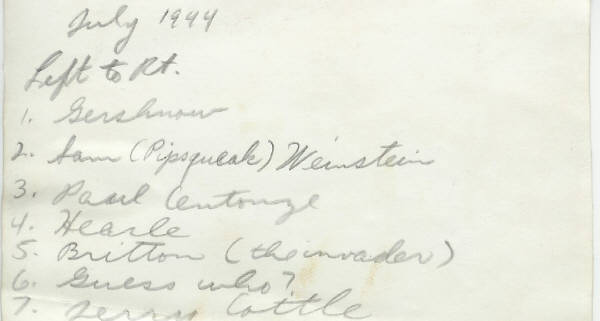 July 1944
Left to Rt.
1. Gershnow
2. Sam (Pipsqueak) Weinstein
3. Paul Centonze
4. Hearle
5. Britton (the invader)
6. Guess who?
7. Jerry Cottle